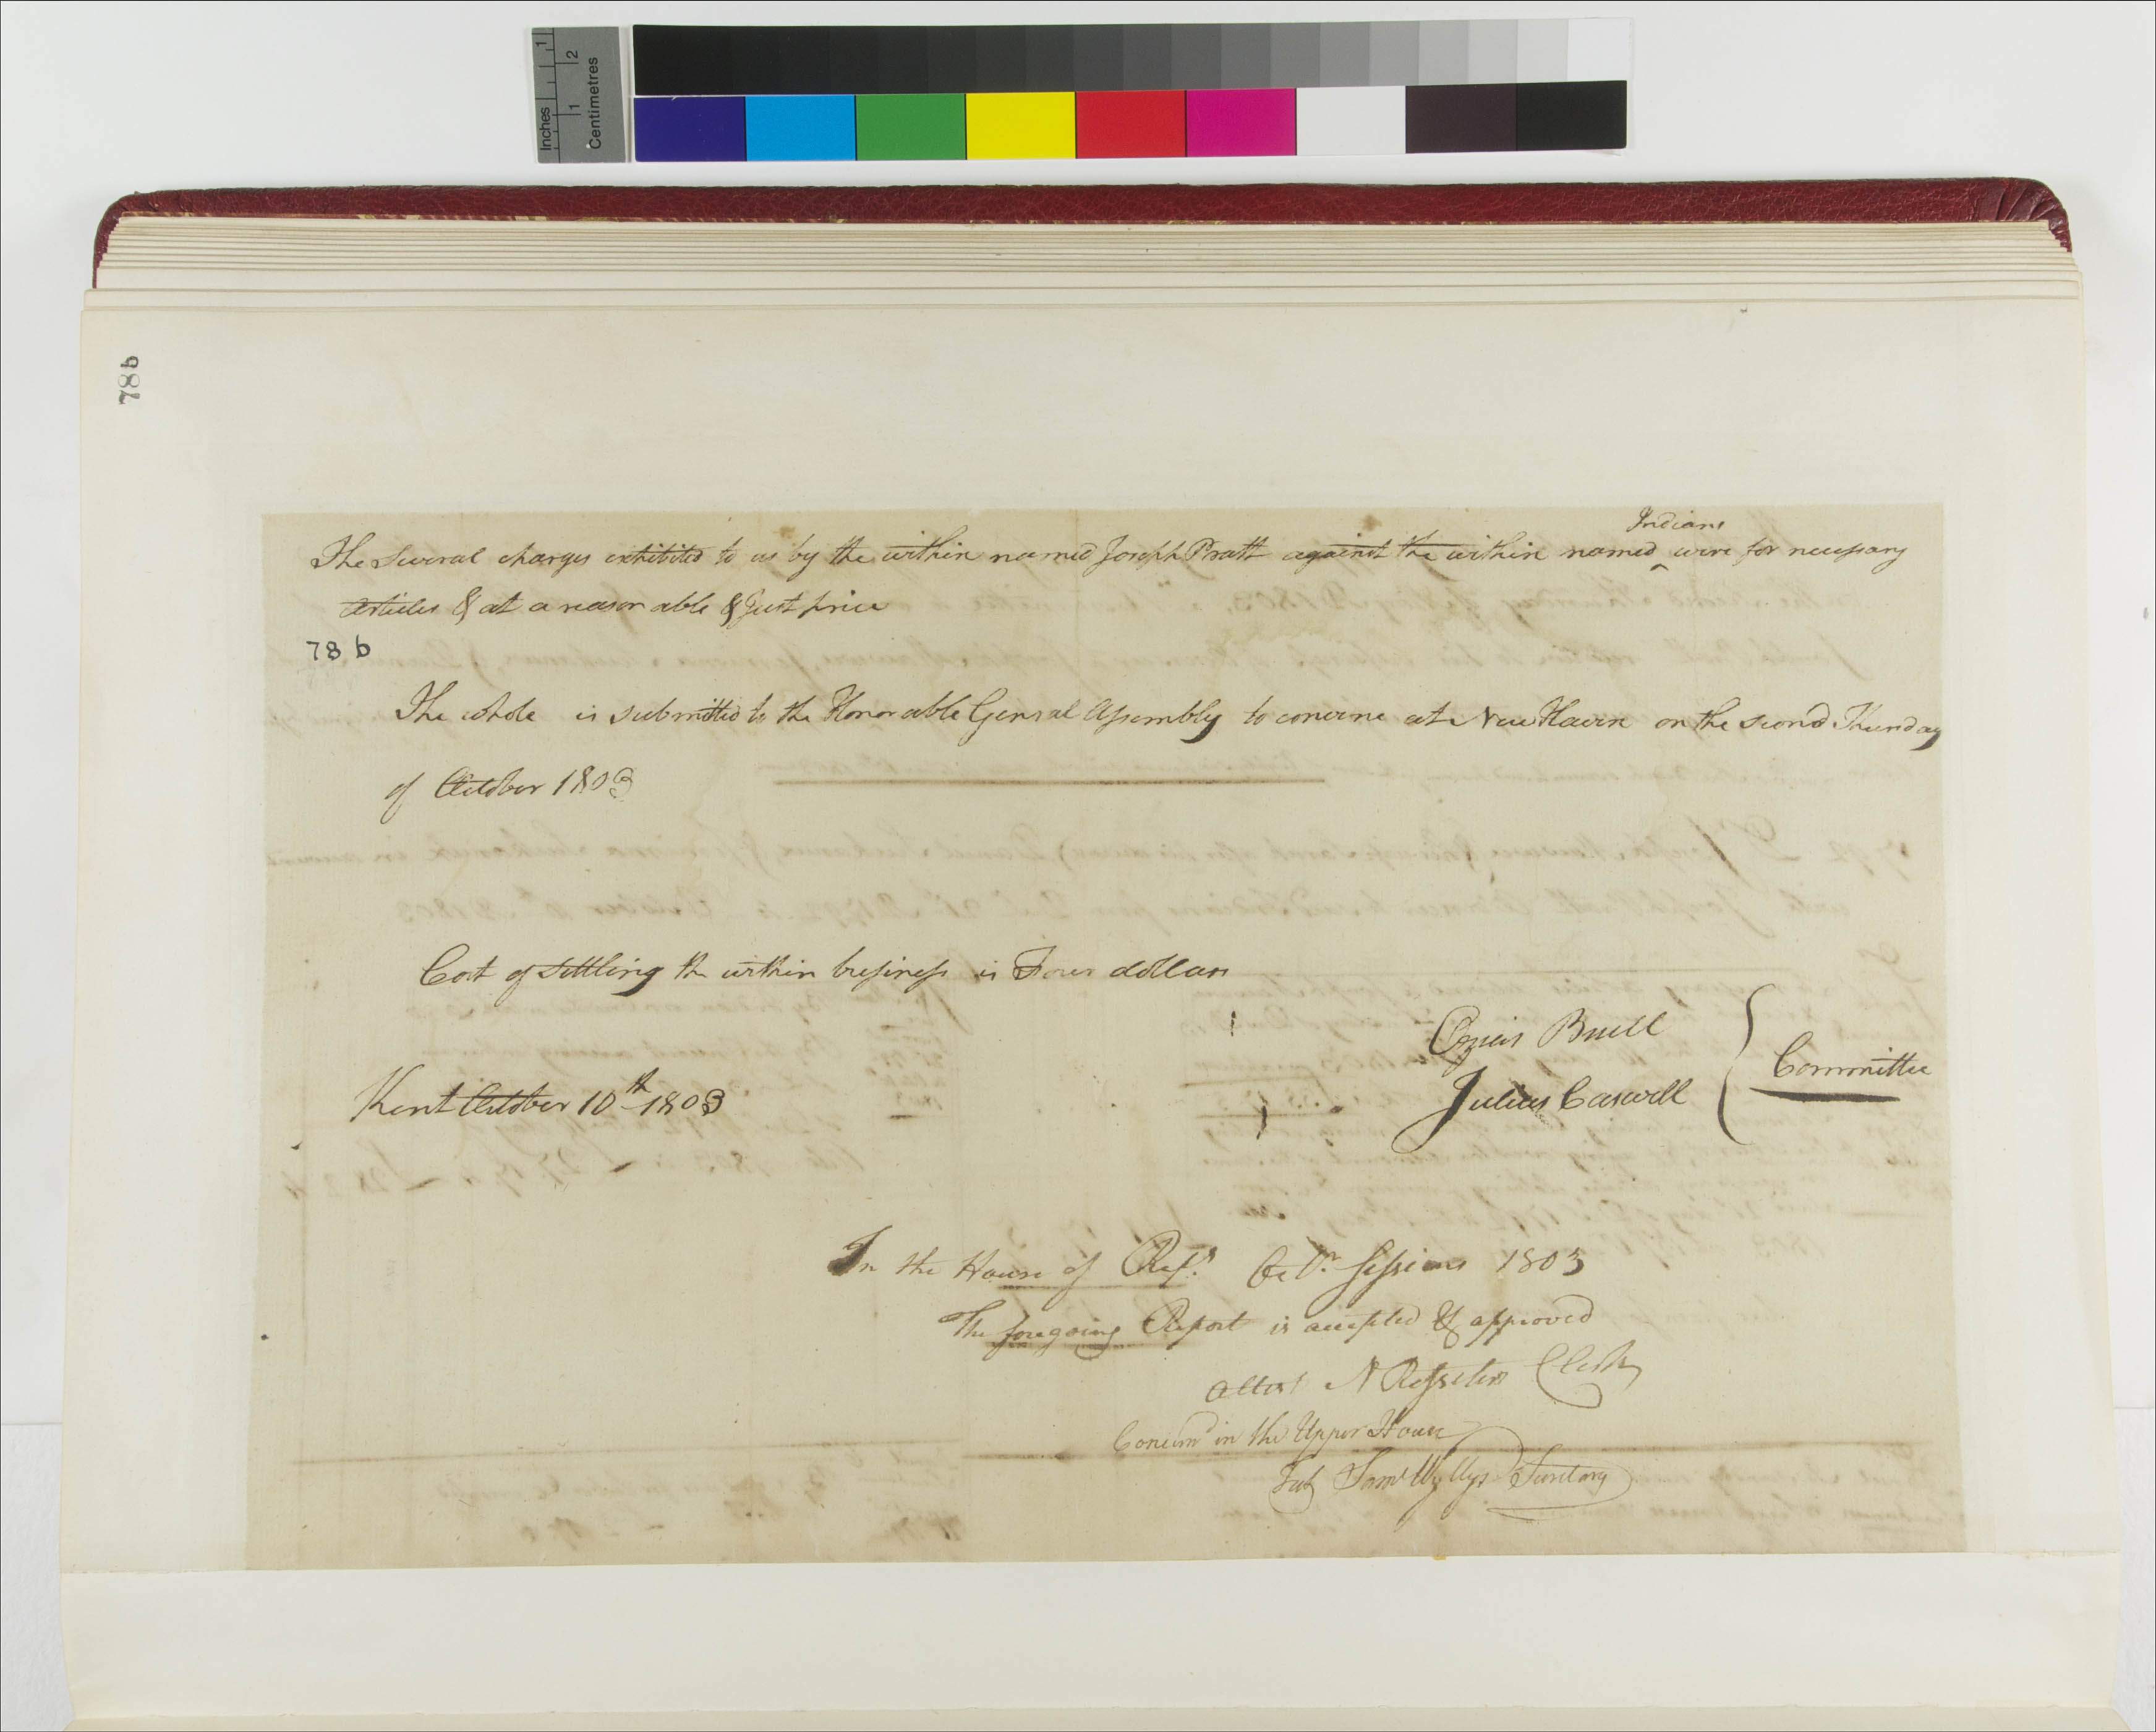 Inches 1
1 2
Centimetres
78b
Indians
The Several charges exhibited to us by the within named Joseph Pratt against the within named ‸ were for necessary
Articles & at a reasonable & Just price
78 b
The whole is submitted to the Honorable General Assembly to convene at New Haven on the second Thursday
of October 1803
Cost of settling the within business is Four dollars
Buell
Kent October 10th 1803
Julius Caswell
Committee
In the House of Reps. Octr. Sessions 1803
The foregoing Report is accepted & approved
Attest N Rosseter Clerk
Concurrd in the Upper House
Test Saml Wyllys Secretary